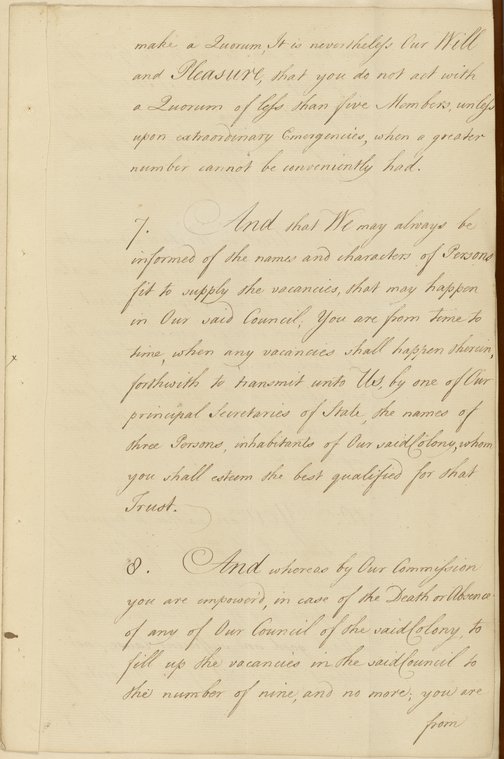 make a Quorum, It is nevertheless Our Will
and Pleasure, that you do not act with
a Quorum of less than five Members, unless
upon extraordinary Emergencies, when a greater
number cannot be conveniently had.
7. And that We may always be
informed of the names and characters of Persons
fit to supply the vacancies, that may happen
in Our said Council; You are from time to
time, when any vacancies shall happen therein,
forthwith to transmit unto Us, by one of Our
principal Secretaries of State, the names of
three Persons, inhabitants of Our said Colony, whom
you shall esteem the best qualified for that
Trust.
8. And whereas by Our Commission
you are empower'd, in case of the Death or Absence
of any of Our Council of the said Colony, to
fill up the vacancies in the said Council to
the number of nine, and no more; you are
from